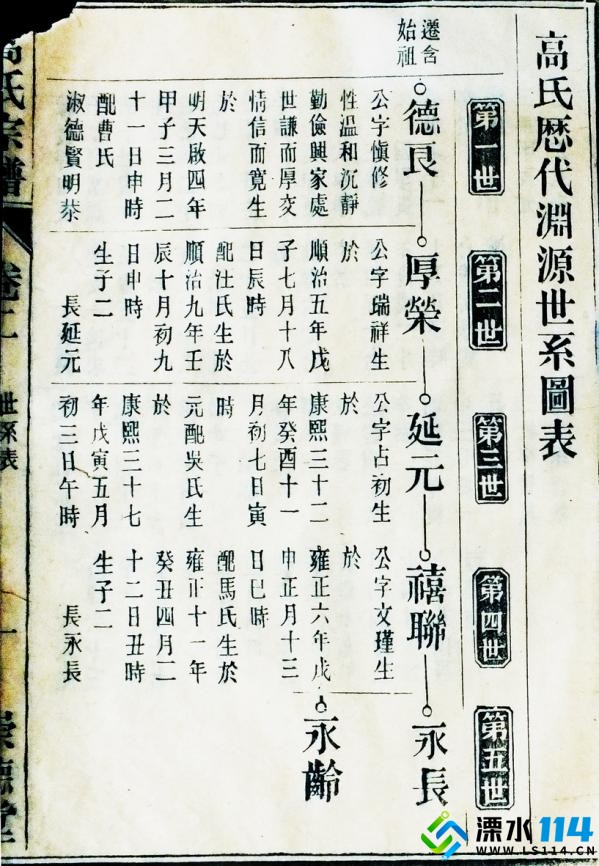 高氏厯代淵源世系圖表
第一世
第二世
第三世
第四世
第五世
遷含
始祖
德良
公字愼修
性溫和沉靜
勤儉興家處
世謙而厚交
情信而寬生
於
明天啟四年
甲子三月二
十一日申時
配曹氏
淑德賢明恭
厚榮
公字瑞祥生
於
順治五年戊
子七月十八
日辰時
配汪氏生於
順治九年壬
辰十月初九
日申時
生子二
長延元
延元
公字占初生
於
康熙三十二
年癸酉十一
月初七日寅
時
元配吳氏生
於
康熙三十七
年戊寅五月
初三日午時
禧聯
公字文瑾生
於
雍正六年戊
申正月十三
日巳時
配馬氏生於
雍正十一年
癸丑四月二
十二日丑時
生子二
長永長
永長
永齡
高氏宗譜
卷二
世系表
一
崇德堂
溧水114
WWW.LS114.CN